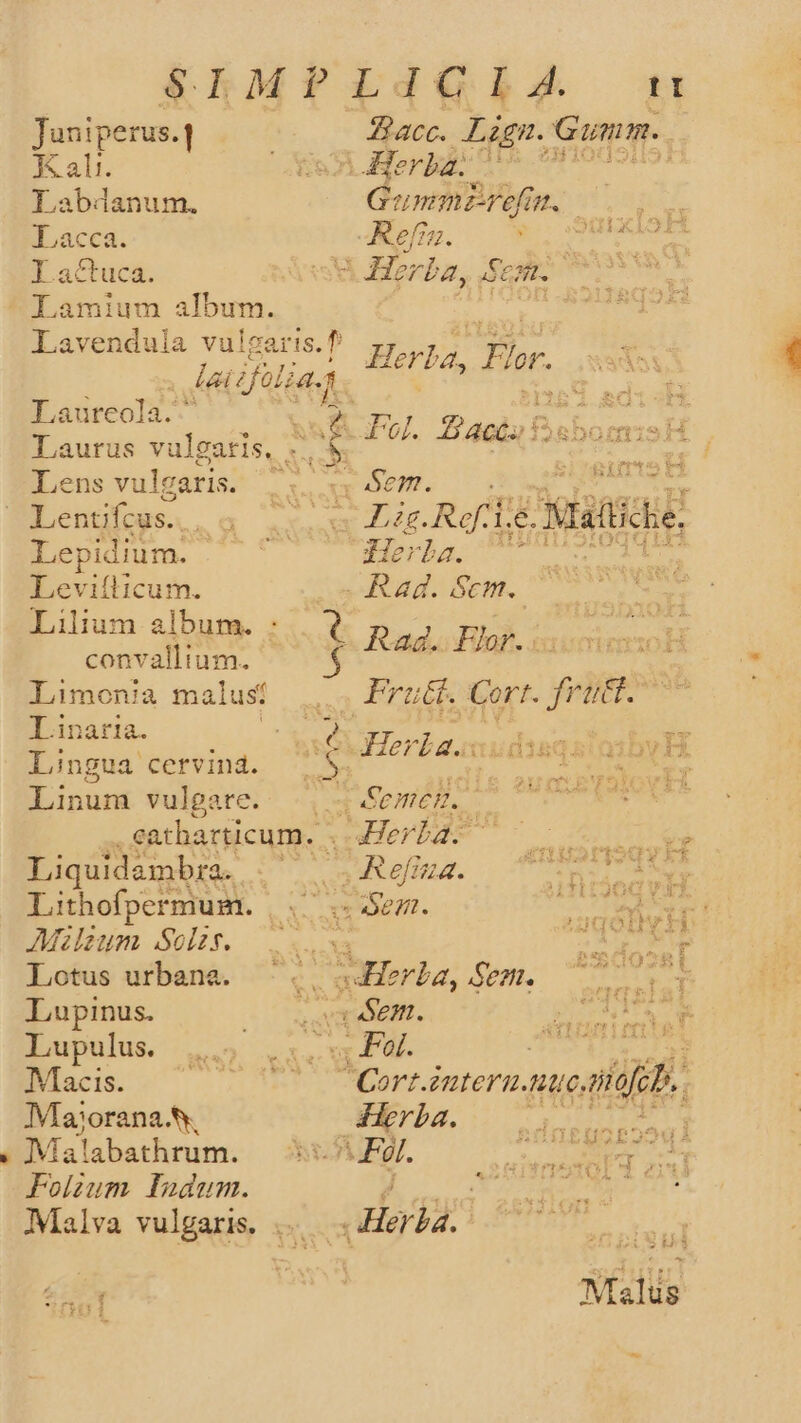 SIMPLICIA. 11
Juniperus.¶ Bacc. Lign. Gumm.
Kali. Herba.
Labdanum. Gummi-reſin.
Lacca. Reſin.
Lactuca. Herba, Sem.
Lamium album.
Lavendula vulgaris. Herba, Flor.
latifolia.
Laureola.
Laurus vulgaris. Fol. Bacc.
Lens vulgaris. Sem.
Lentiſcus. Lig. Reſ. i.e. Maſtiche.
Lepidium. Herba.
Leviſticum. Rad. Sem.
Lilium album.
convallium. Rad. Flor.
Limonia malus Fruct. Cort. fruct.
Linaria.
Lingua cervina. Herba.
Linum vulgare. Semen.
catharticum. Herba.
Liquidambra. Reſina.
Lithoſpermum. Sem.
Milium Solis.
Lotus urbana. Herba, Sem.
Lupinus. Sem.
Lupulus. Fol.
Macis. Cort. intern. nuc. moſch.
Majorana. Herba.
Malabathrum. Fol.
Folium Indum.
Malva vulgaris. Herba.
Malus